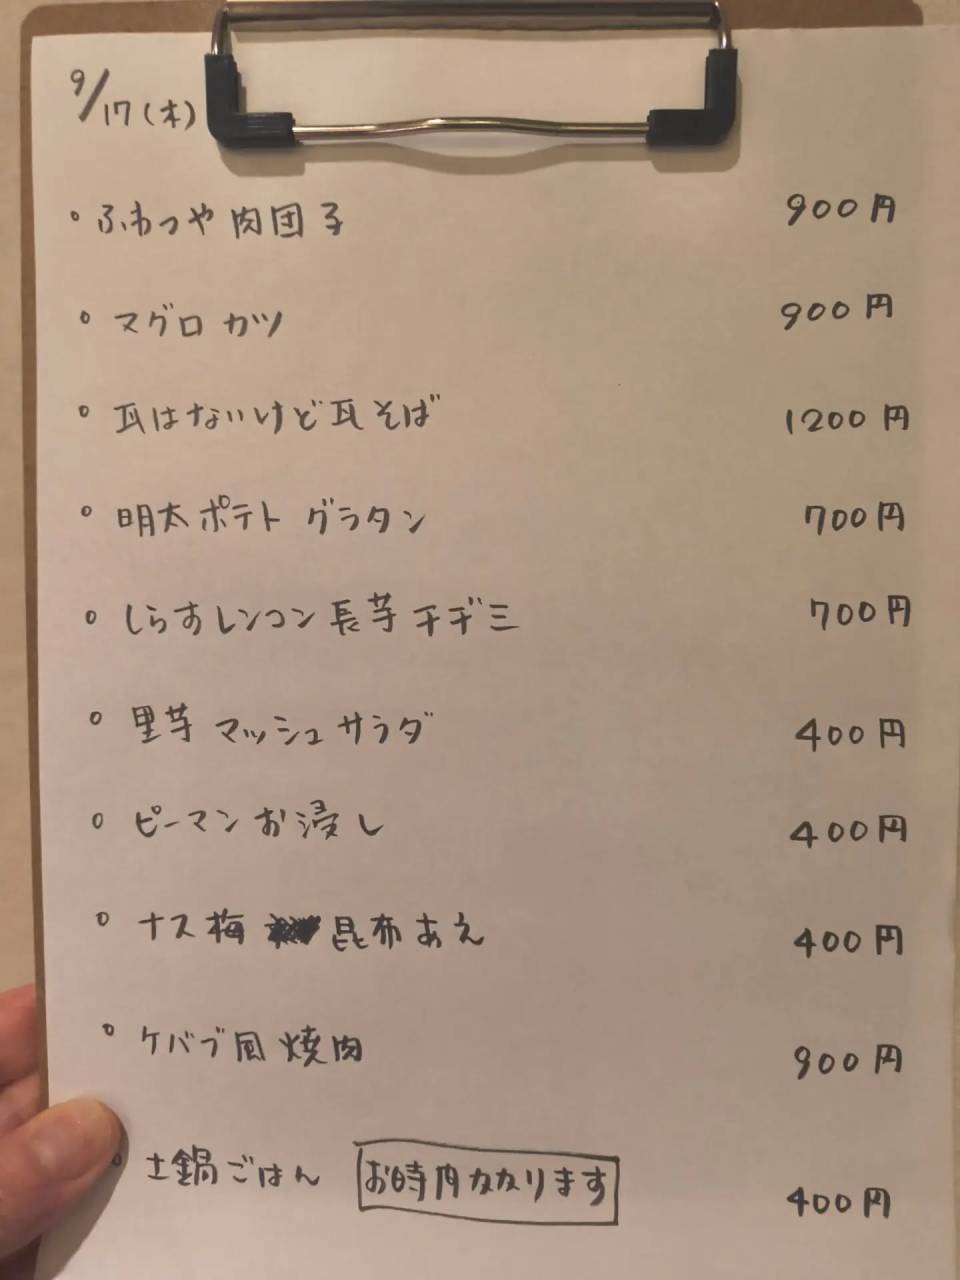 9/17(木)
ふわっや肉団子 900円
マグロカツ 900円
瓦はないけど瓦そば 1200円
明太ポテトグラタン 700円
しらすレンコン長芋チヂミ 700円
里芋マッシュサラダ 400円
ピーマンお浸し 400円
ナス梅昆布あえ 400円
ケバブ風焼肉 900円
土鍋ごはん お時間かかります 400円